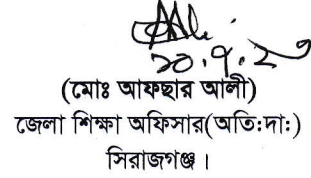 ২০.৭.২৩
(মোঃ আফছার আলী)
জেলা শিক্ষা অফিসার(অতি:দা:)
সিরাজগঞ্জ।